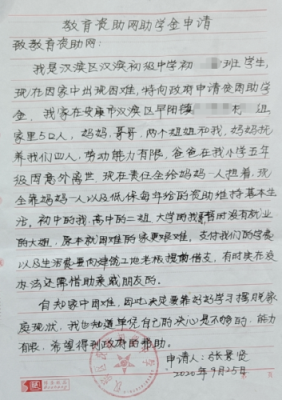 教育资助网助学金申请
致教育资助网：
我是汉滨区汉滨初级中学初 班学生，
现在因家中出现困难，特向政府申请贫困助学
金。我家在安康市汉滨区早阳镇 村 组，
家里5口人，妈妈，哥哥，两个姐姐和我，妈妈抚
养我们四人，劳动能力有限，爸爸在我小学五年
级因意外离世，现在责任全给妈妈一人担着，现
全靠妈妈一人以及低保每年给的资助维持基本生
活，初中的我，高中的二姐，大学的哥哥暂没有就业
的大姐，原本就困难的家更艰难，支付我们的学费
以及生活费要向建筑工地老板提前借支，有时实在没
办法还需借助亲戚朋友的。
自知家中困难，因此决定要靠努力学习摆脱家
庭现状，我也知道单凭自己的决心是不够的，能力
有限，希望得到政府的帮助。
申请人：张景
2020年9月25日